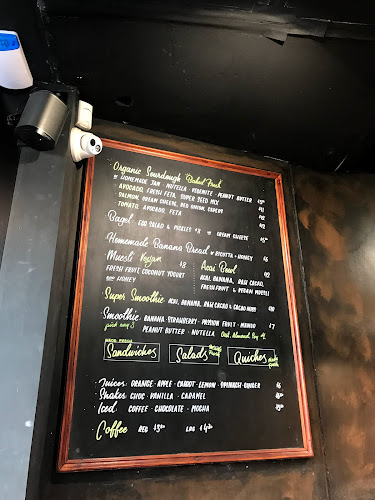 Organic Sourdough Baked Fresh
w HOMEMADE JAM · NUTELLA · VEGEMITE · PEANUT BUTTER
· AVOCADO, FRESH FETA, SUPER SEED MIX 12
SALMON, CREAM CHEESE, RED ONION, CAPERS
TOMATO, AVOCADO, FETA 12
Bagel EGG SALAD & PICKLES $8 w CREAM CHEESE
Homemade Banana Bread w RICOTTA + HONEY $6
Muesli Vegan $8
FRESH FRUIT, COCONUT YOGURT
HONEY
Acai Bowl
ACAI, BANANA, RAW CACAO,
FRESH FRUIT & VEGAN MUESLI
Super Smoothie ACAI, BANANA, RAW CACAO & $10
Smoothie BANANA · STRAWBERRY · PASSION FRUIT · MANGO $7
pick any 3 PEANUT BUTTER · NUTELLA Oat, Almond, Soy
Sandwiches
Salads
Quiches
Juices ORANGE · APPLE · CARROT · LEMON · SPINACH · GINGER
Shakes CHOC · VANILLA · CARAMEL
Iced COFFEE · CHOCOLATE · MOCHA
Coffee REG LRG